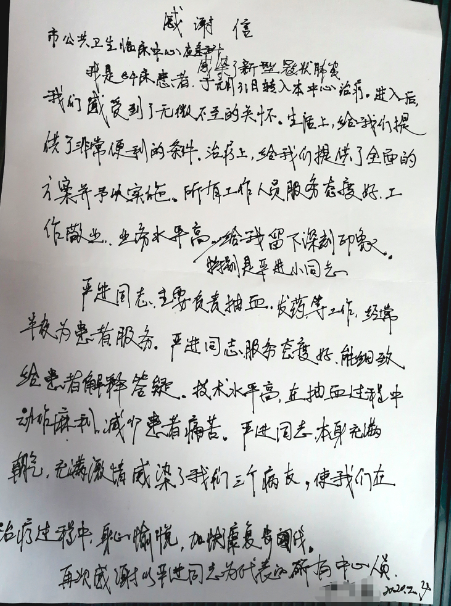 感谢信
市公共卫生临床中心应急科
感染了新型冠状肺炎
我是 床患者，于元月31日转入本中心治疗。进入后，
我们感受到了无微不至的关怀。生活上，给我们提
供了非常便利的条件。治疗上，给我们提供了全面的
方案并予以实施。所有工作人员服务态度好，工
作敬业，业务水平高。给我留下深刻印象。
特别是严进小同志
严进同志，主要负责抽血，发药等工作，经常
半夜为患者服务。严进同志服务态度好，能细致
给患者解释答疑。技术水平高，在抽血过程中
动作麻利，减少患者痛苦。严进同志本身充满
朝气，充满激情感染了我们三个病友，使我们在
治疗过程中，身心愉悦，加快康复 。
再次感谢以严进同志为代表的所有中心人员.
2020.2.